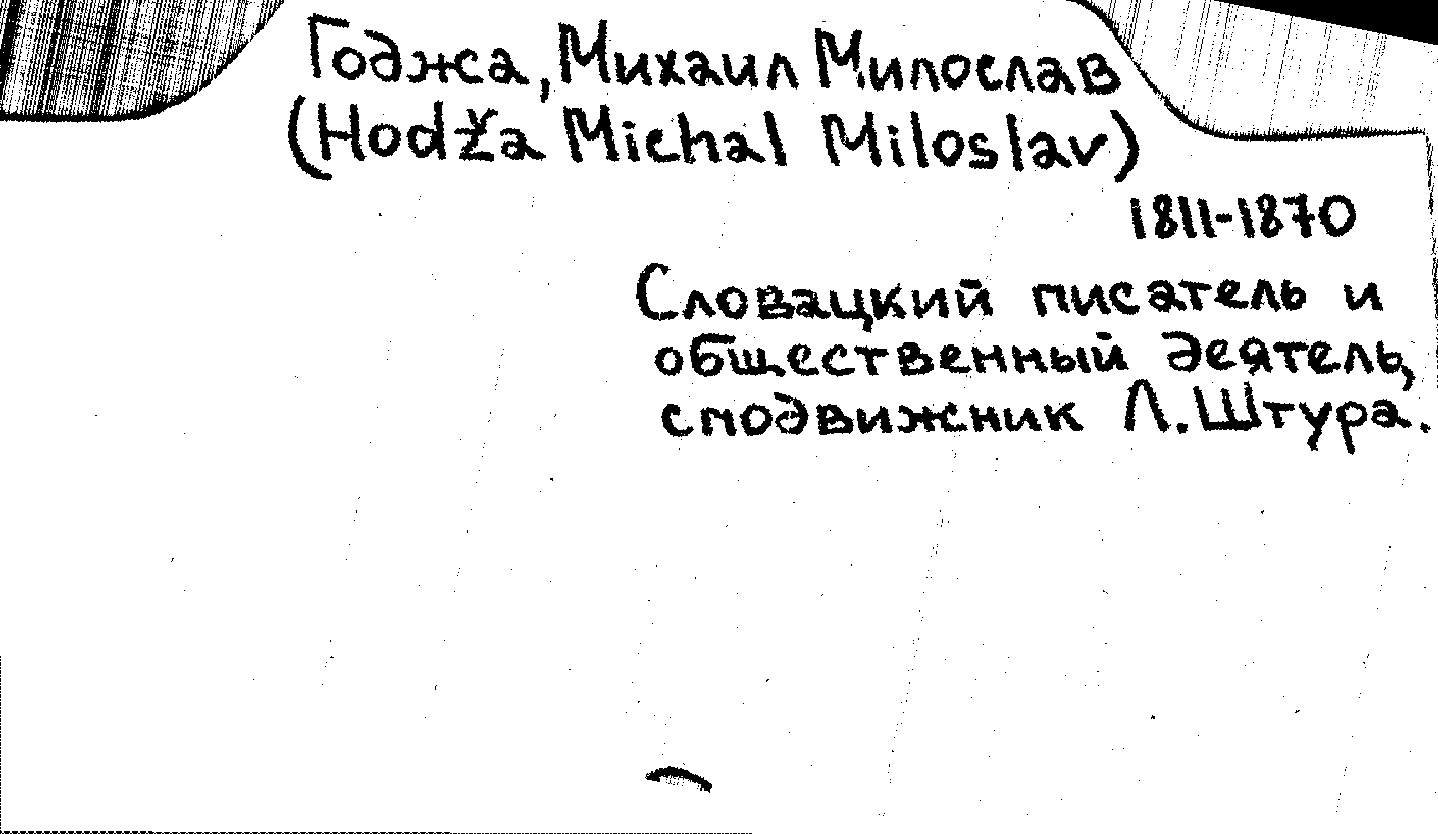 Годжа, Михаил Милослав
(Hodža Michal Miloslav)
1811-1870
Словацкий писатель и
общественный деятель,
сподвижник Л. Штура.